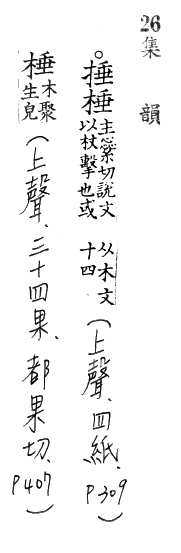 26集韻
。捶棰主橤切說文以杖擊也或从木文十四(上聲、四紙、P309)
棰木聚生皃(上聲、三十四果、都果切、P407)